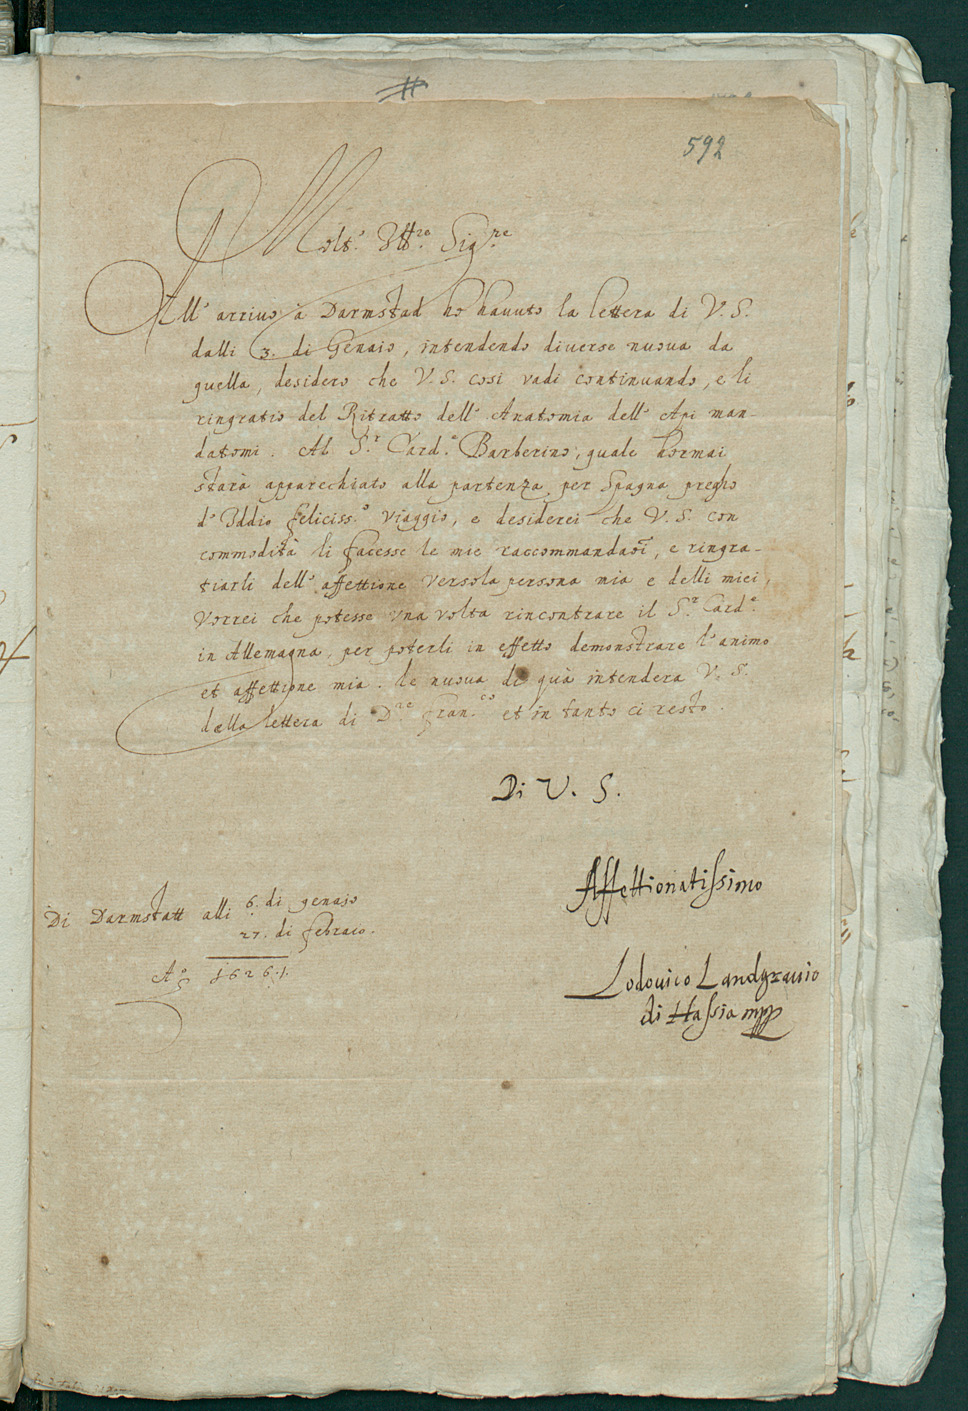 592
Molt.' Ill.re Sig.re
All' arriuo à Darmstad ho hauuto la lettera di V. S.
dalli 3. di Genaio, intendendo diuerse nuoua da
quella, desidero che V. S. cosi vadi continuando, e li
ringratio del Ritratto dell' Anatomia dell' Api man-
datomi. Al S.r Card.e Barberino, quale hormai
starà apparechiato alla partenza per Spagna pregho
d' Iddio feliciss.o viaggio, e desiderei che V. S. con
commodità li facesse le mie raccommandaoī, e ringra-
tiarli dell' affettione verso la persona mia e delli miei,
vorrei che potesse vna volta rincontrare il S.r Card.e
in Allemagna, per poterli in effetto demonstrare l' animo
et affettione mia. le nuoua di quà intendera V. S.
dalla lettera di D.re Fran.co et in tanto ci resto.
Di V. S.
Affettionatissimo
Di Darmstatt alli 6. di genaio
27. di febraio.
A.o 1626.
Lodouico Landgrauio
di Hassia mpp